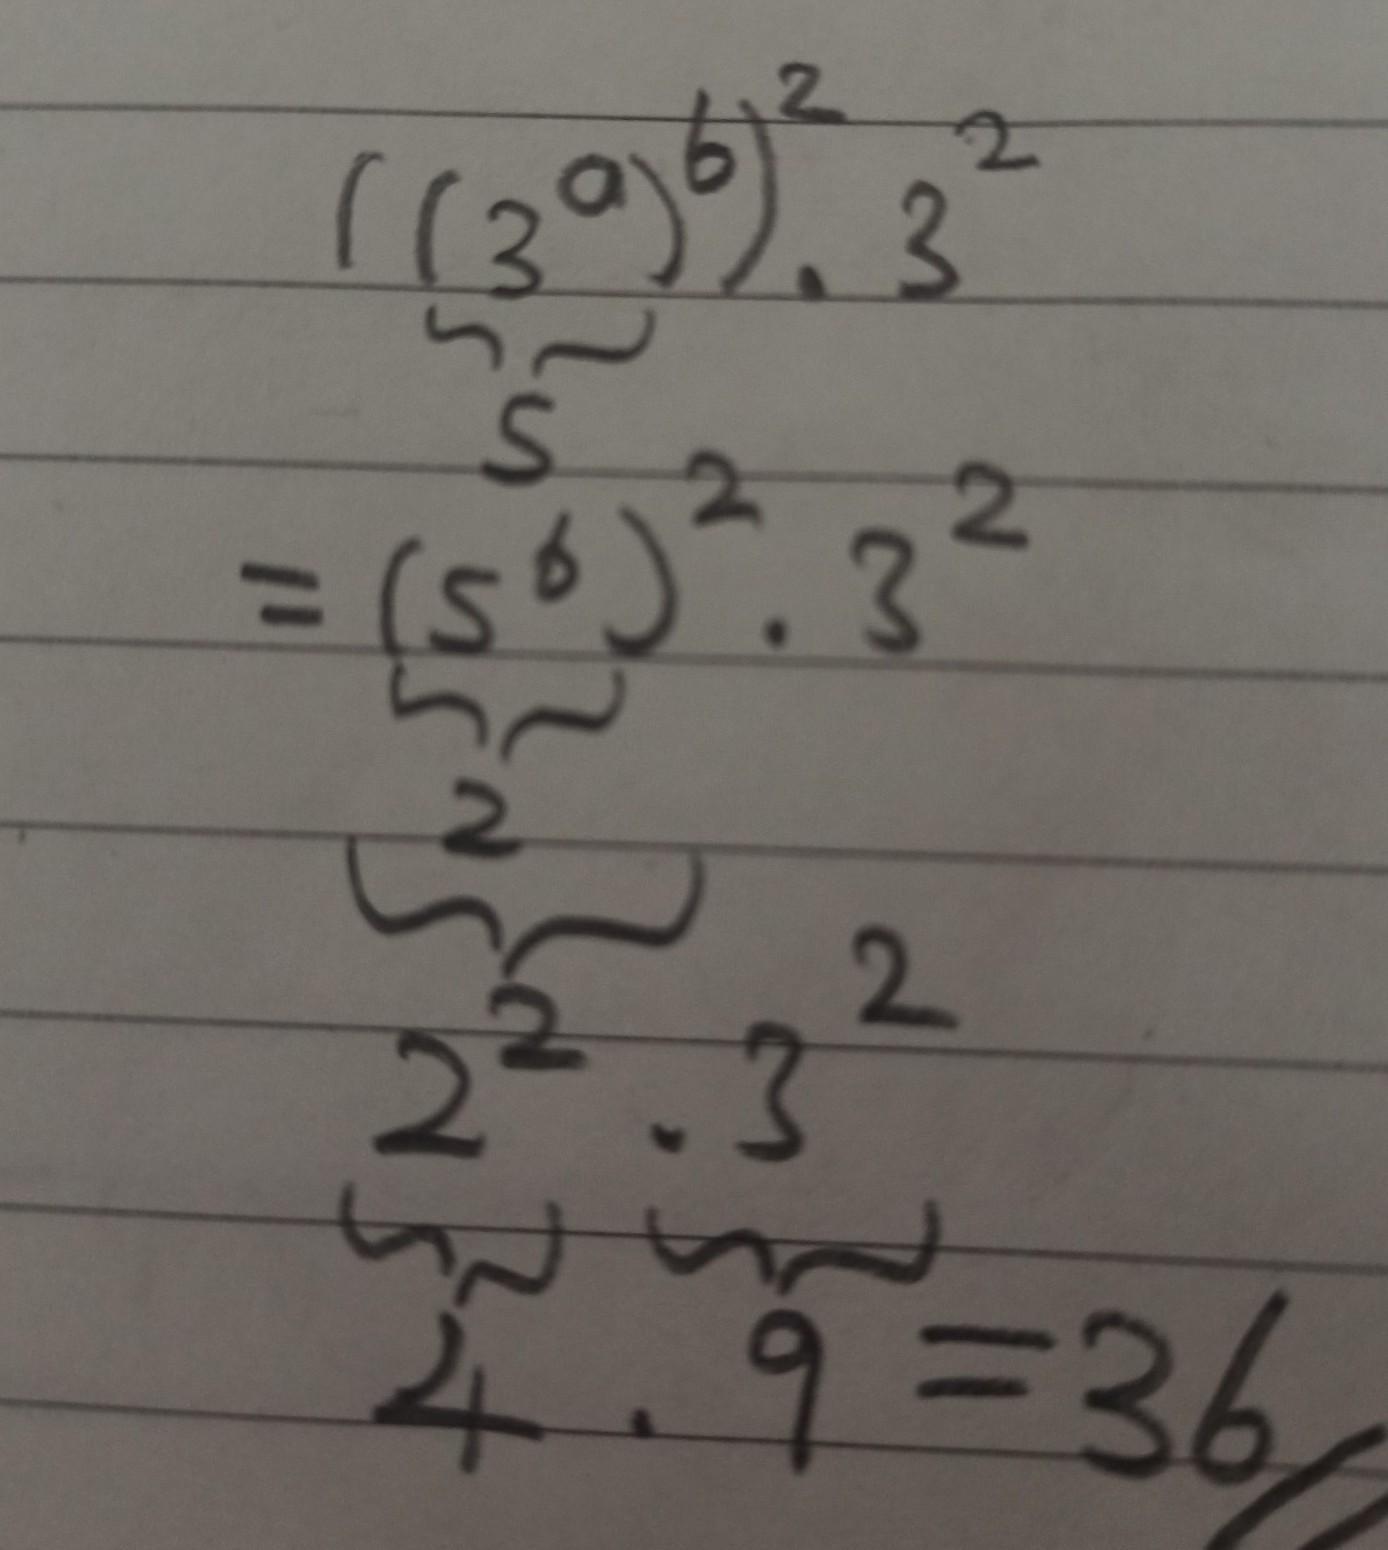 ((3ᵃ)ᵇ)² . 3²
5
= (5ᵇ)² . 3²
2
2² . 3²
4 . 9 = 36